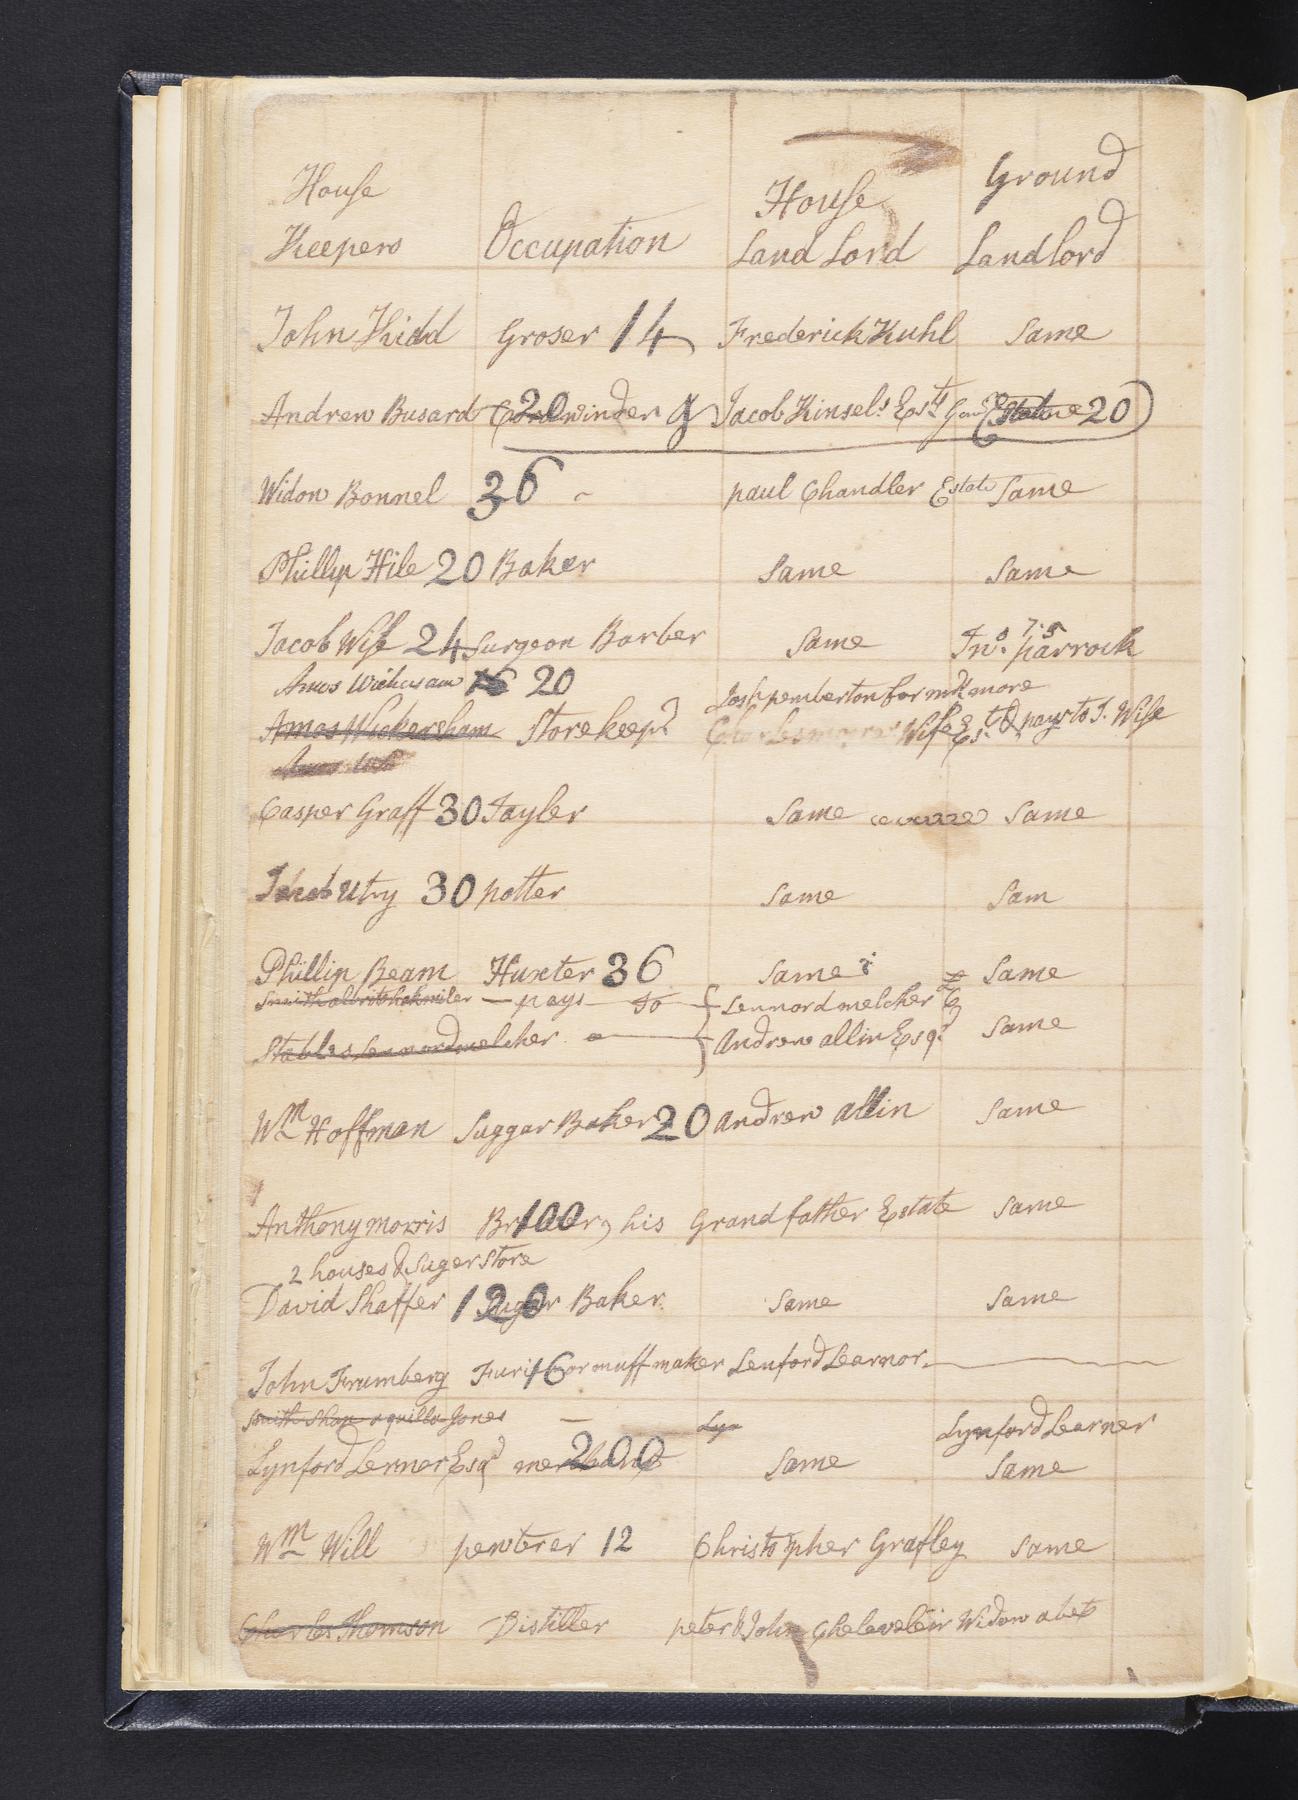 House Keepers Occupation House Land Lord Ground Landlord
John Kidd Groser 14 Frederick Kuhl Same
Andrew Busard Cordwinder 20 Jacob Kinsels Est. 20
Widow Bonnel 36 - paul Chandler Estate Same
Phillip Hile 20 Baker Same Same
Jacob Wise 24 Surgeon Barber Same Jno. parrock
Amos 20 Jos. pemberton for more
Amos Wickersham Storekeepr Wife Est. & pays to J. Wise
Casper Graff 30 Tayler Same Same
Jacob Utry 30 potter Same Sam
Phillip Beam Huxter 36 Same Same
Smith - pays - to - Lennord melcher
Stables Lennord melcher Andrew allin Esqr Same
Wm Hoffman Suggar Baker 20 andrew allin Same
Anthony morris Brewer 100, his Grandfather Estate Same
2 houses & Suger Store
David Shaffer 120 Sugar Baker Same Same
John Frumberg 16 or muff maker Lenford Learnor
Smith Shop aquilla Jones - Lyn Lynford Learner
Lynford Lerner Esqr merchant 200 Same Same
Wm Will pewterer 12 Christopher Grafley Same
Charles Thomson Distiller peter & John Widow